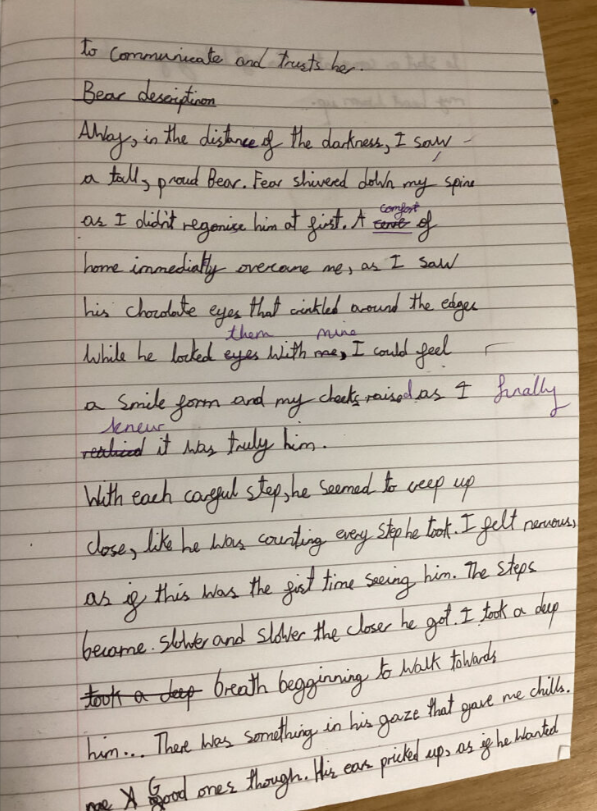 to communicate and trusts her.
Bear description
Away, in the distance of the darkness, I saw
a tall, proud Bear. Fear shivered down my spine
as I didn't regonise him at first. A comfort of
home immediatly overcame me, as I saw
his chocolate eyes that crinkled around the edges
them mine
While he locked eyes with me, I could feel
a smile form and my cheeks raised as I finally
knew
realised it was truly him.
With each careful step, he seemed to creep up
close, like he was counting every step he took. I felt nervous,
as if this was the first time seeing him. The steps
became slower and slower the closer he got. I took a deep
took a deep breath begginning to walk towards
him... There was something in his gaze that gave me chills.
Good ones though. His ears pricked up, as if he wanted